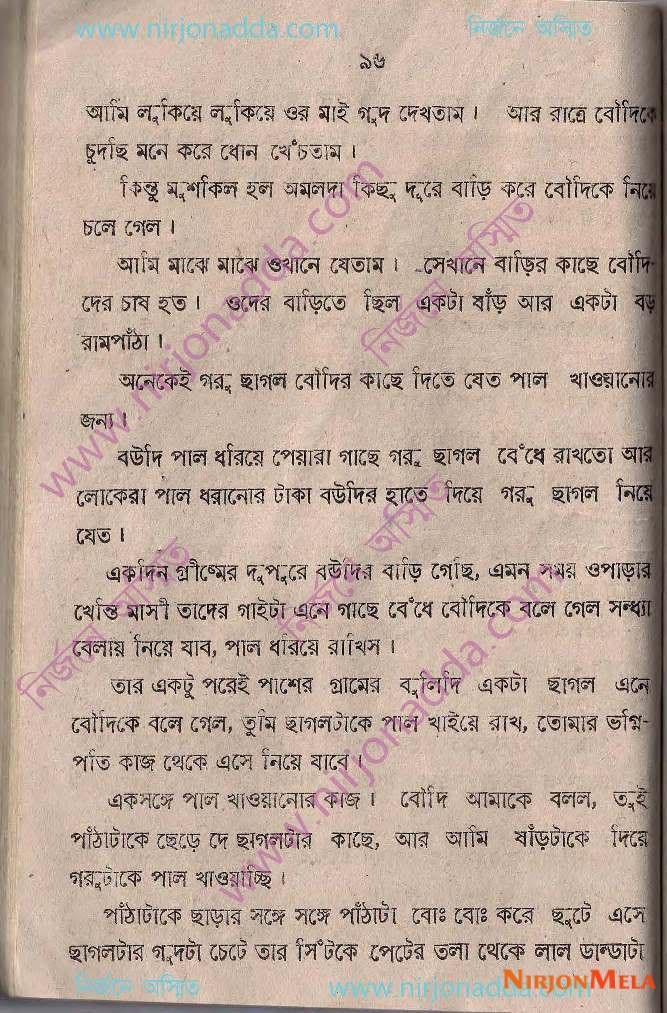 www.nirjonadda.com নির্জনে অস্মিত
৯৬
আমি লুকিয়ে লুকিয়ে ওর মাই গুদ দেখতাম। আর রাত্রে বৌদিকে
চুদছি মনে করে ধোন খেঁচতাম।
কিন্তু মুশকিল হল অমলদা কিছু দূরে বাড়ি করে বৌদিকে নিয়ে
চলে গেল।
আমি মাঝে মাঝে ওখানে যেতাম। সেখানে বাড়ির কাছে বৌদি-
দের চাষ হত। ওদের বাড়িতে ছিল একটা ষাঁড় আর একটা বড়
রামপাঁঠা।
অনেকেই গরু ছাগল বৌদির কাছে দিতে যেত পাল খাওয়ানোর
জন্য।
বউদি পাল ধরিয়ে পেয়ারা গাছে গরু ছাগল বেঁধে রাখতো আর
লোকেরা পাল ধরানোর টাকা বউদির হাতে দিয়ে গরু ছাগল নিয়ে
যেত।
একদিন গ্রীষ্মের দুপুরে বউদির বাড়ি গেছি, এমন সময় ওপাড়ার
খেন্তি মাসী তাদের গাইটা এনে গাছে বেঁধে বৌদিকে বলে গেল সন্ধ্যা
বেলায় নিয়ে যাব, পাল ধরিয়ে রাখিস।
তার একটু পরেই পাশের গ্রামের বুলিদি একটা ছাগল এনে
বৌদিকে বলে গেল, তুমি ছাগলটাকে পাল খাইয়ে রাখ, তোমার ভগ্নি-
পতি কাজ থেকে এসে নিয়ে যাবে।
একসঙ্গে পাল খাওয়ানোর কাজ। বৌদি আমাকে বলল, তুই
পাঁঠাটাকে ছেড়ে দে ছাগলটার কাছে, আর আমি ষাঁড়টাকে দিয়ে
গরুটাকে পাল খাওয়াচ্ছি।
পাঁঠাটাকে ছাড়ার সঙ্গে সঙ্গে পাঁঠাটা বোঃ বোঃ করে ছুটে এসে
ছাগলটার গুদটা চেটে তার সিঁটকে পেটের তলা থেকে লাল ডান্ডাটা
নির্জনে অস্মিত www.nirjonadda.com
NIRJONMELA
www.nirjonadda.com
নির্জনে অস্মিত
নির্জনে অস্মিত
নির্জনে অস্মিত
www.nirjonadda.com